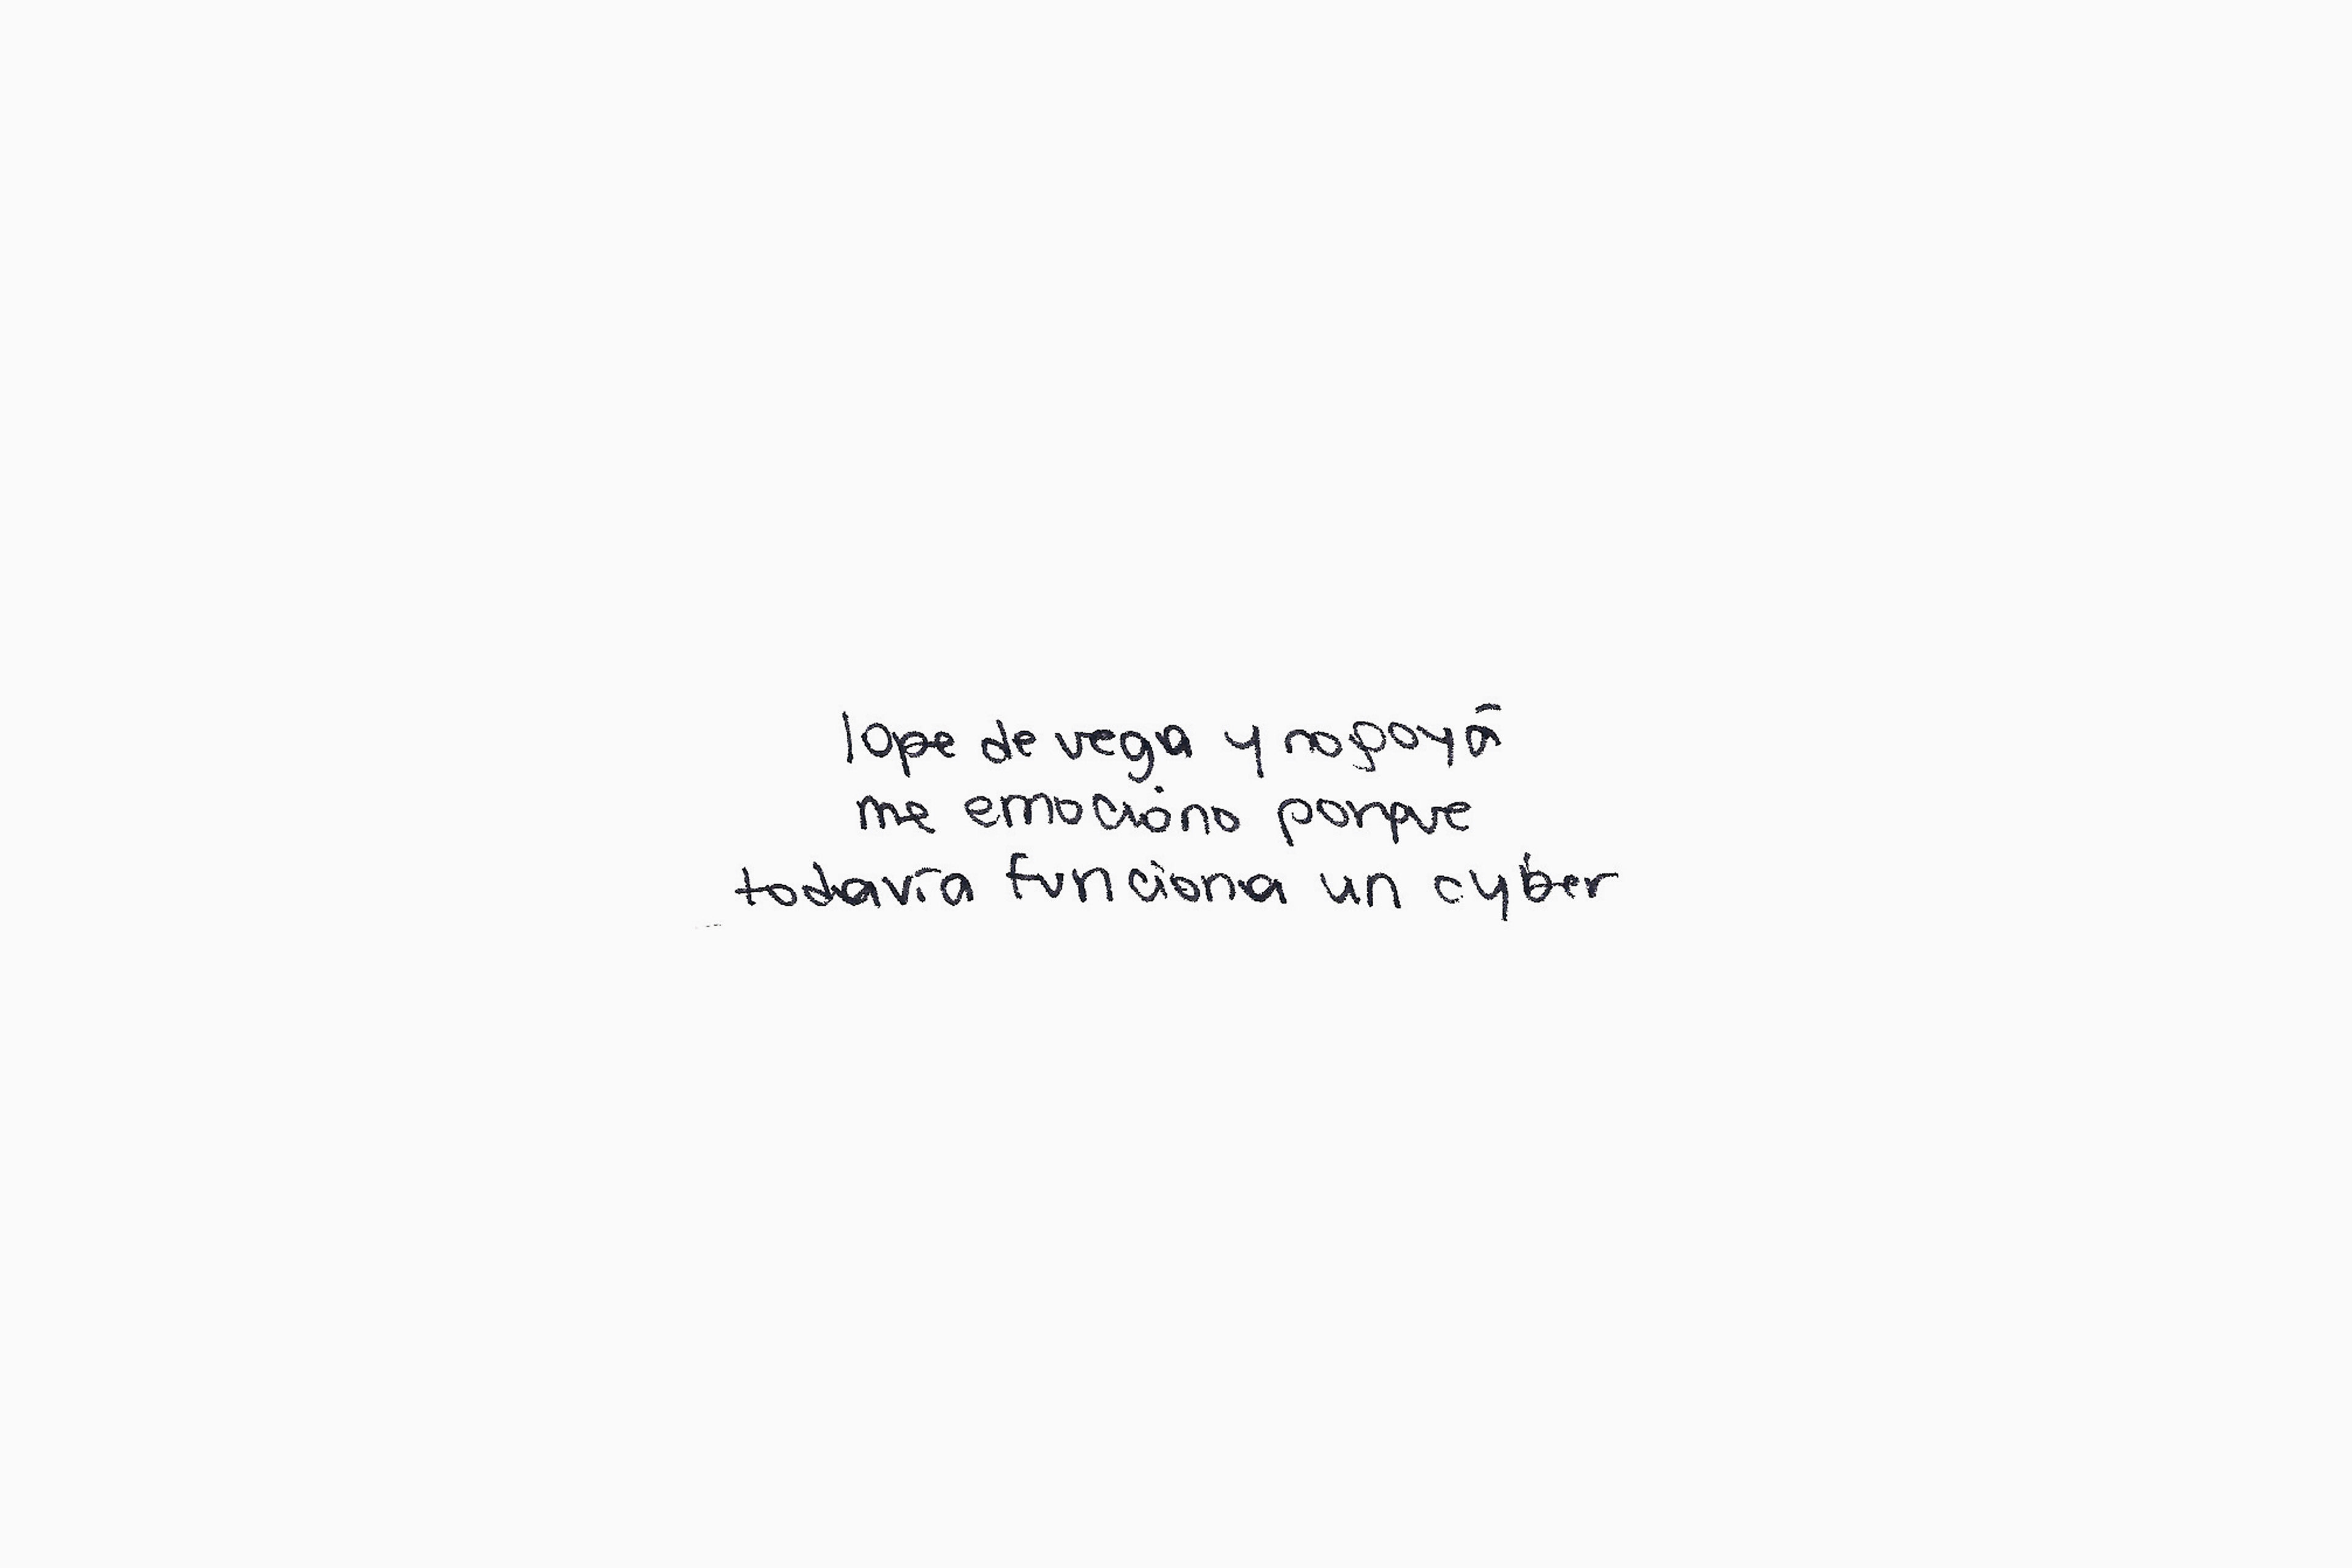 lope de vega y nogoyá
me emociono porque
todavía funciona un cyber